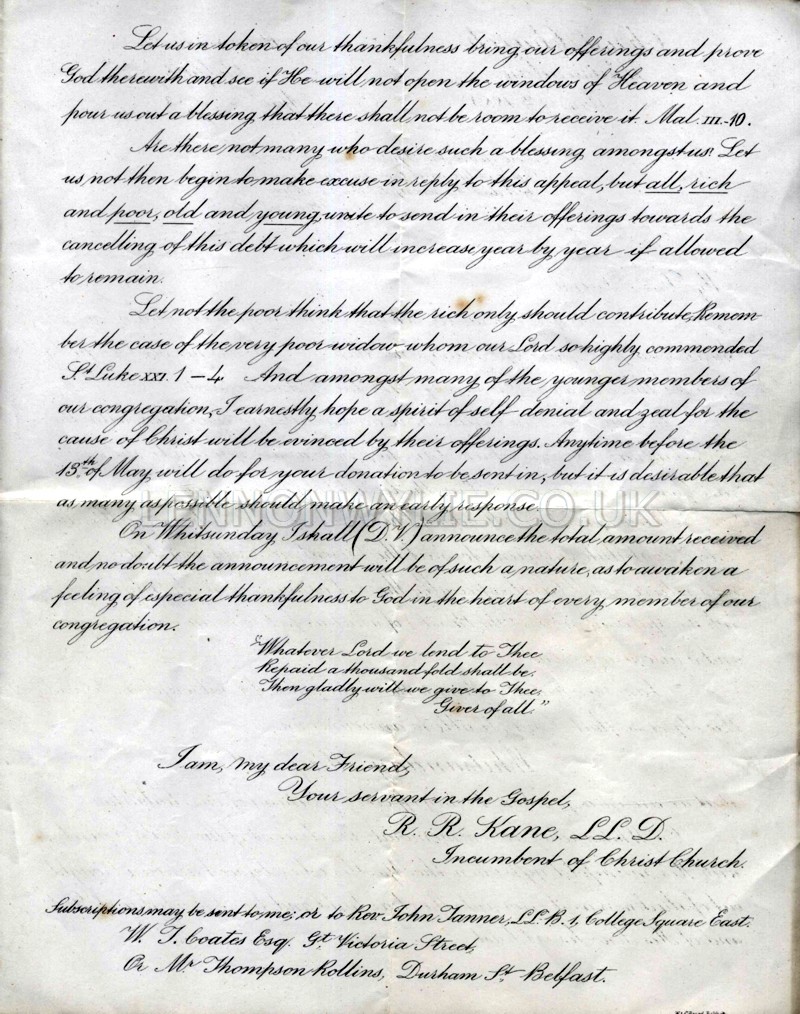 Let us in token of our thankfulness bring our offerings and prove
God therewith and see if He will not open the windows of Heaven and
pour us out a blessing that there shall not be room to receive it. Mal. III.-10.
Are there not many who desire such a blessing amongst us! Let
us not then begin to make excuse in reply to this appeal, but all, rich
and poor, old and young, unite to send in their offerings towards the
cancelling of this debt which will increase year by year if allowed
to remain.
Let not the poor think that the rich only should contribute, Remem-
ber the case of the very poor widow whom our Lord so highly commended
St. Luke XXI. 1-4 And amongst many of the younger members of
our congregation, I earnestly hope a spirit of self denial and zeal for the
cause of Christ will be evinced by their offerings. Anytime before the
13th of May will do for your donation to be sent in, but it is desirable that
as many as possible should make an early response.
LENNONWYLIE.CO.UK
On Whitsunday I shall (D.V.) announce the total amount received
and no doubt the announcement will be of such a nature, as to awaken a
feeling of especial thankfulness to God in the heart of every member of our
congregation.
"Whatever Lord we lend to Thee
Repaid a thousand fold shall be.
Then gladly will we give to Thee.
Giver of all."
I am, my dear Friend,
Your servant in the Gospel,
R. R. Kane, LL. D.
Incumbent of Christ Church.
Subscriptions may be sent to me; or to Rev. John Tanner, LL. B. 1, College Square East.
W. J. Coates Esq. Gt. Victoria Street,
Or Mr Thompson Rollins, Durham St. Belfast.